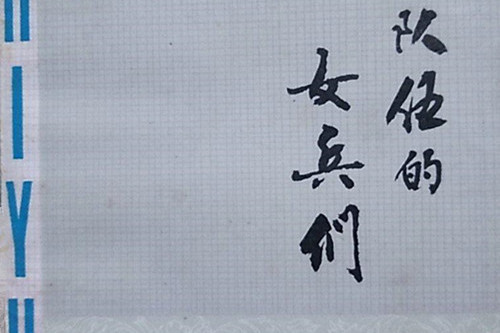 队伍的
女兵们
IYU